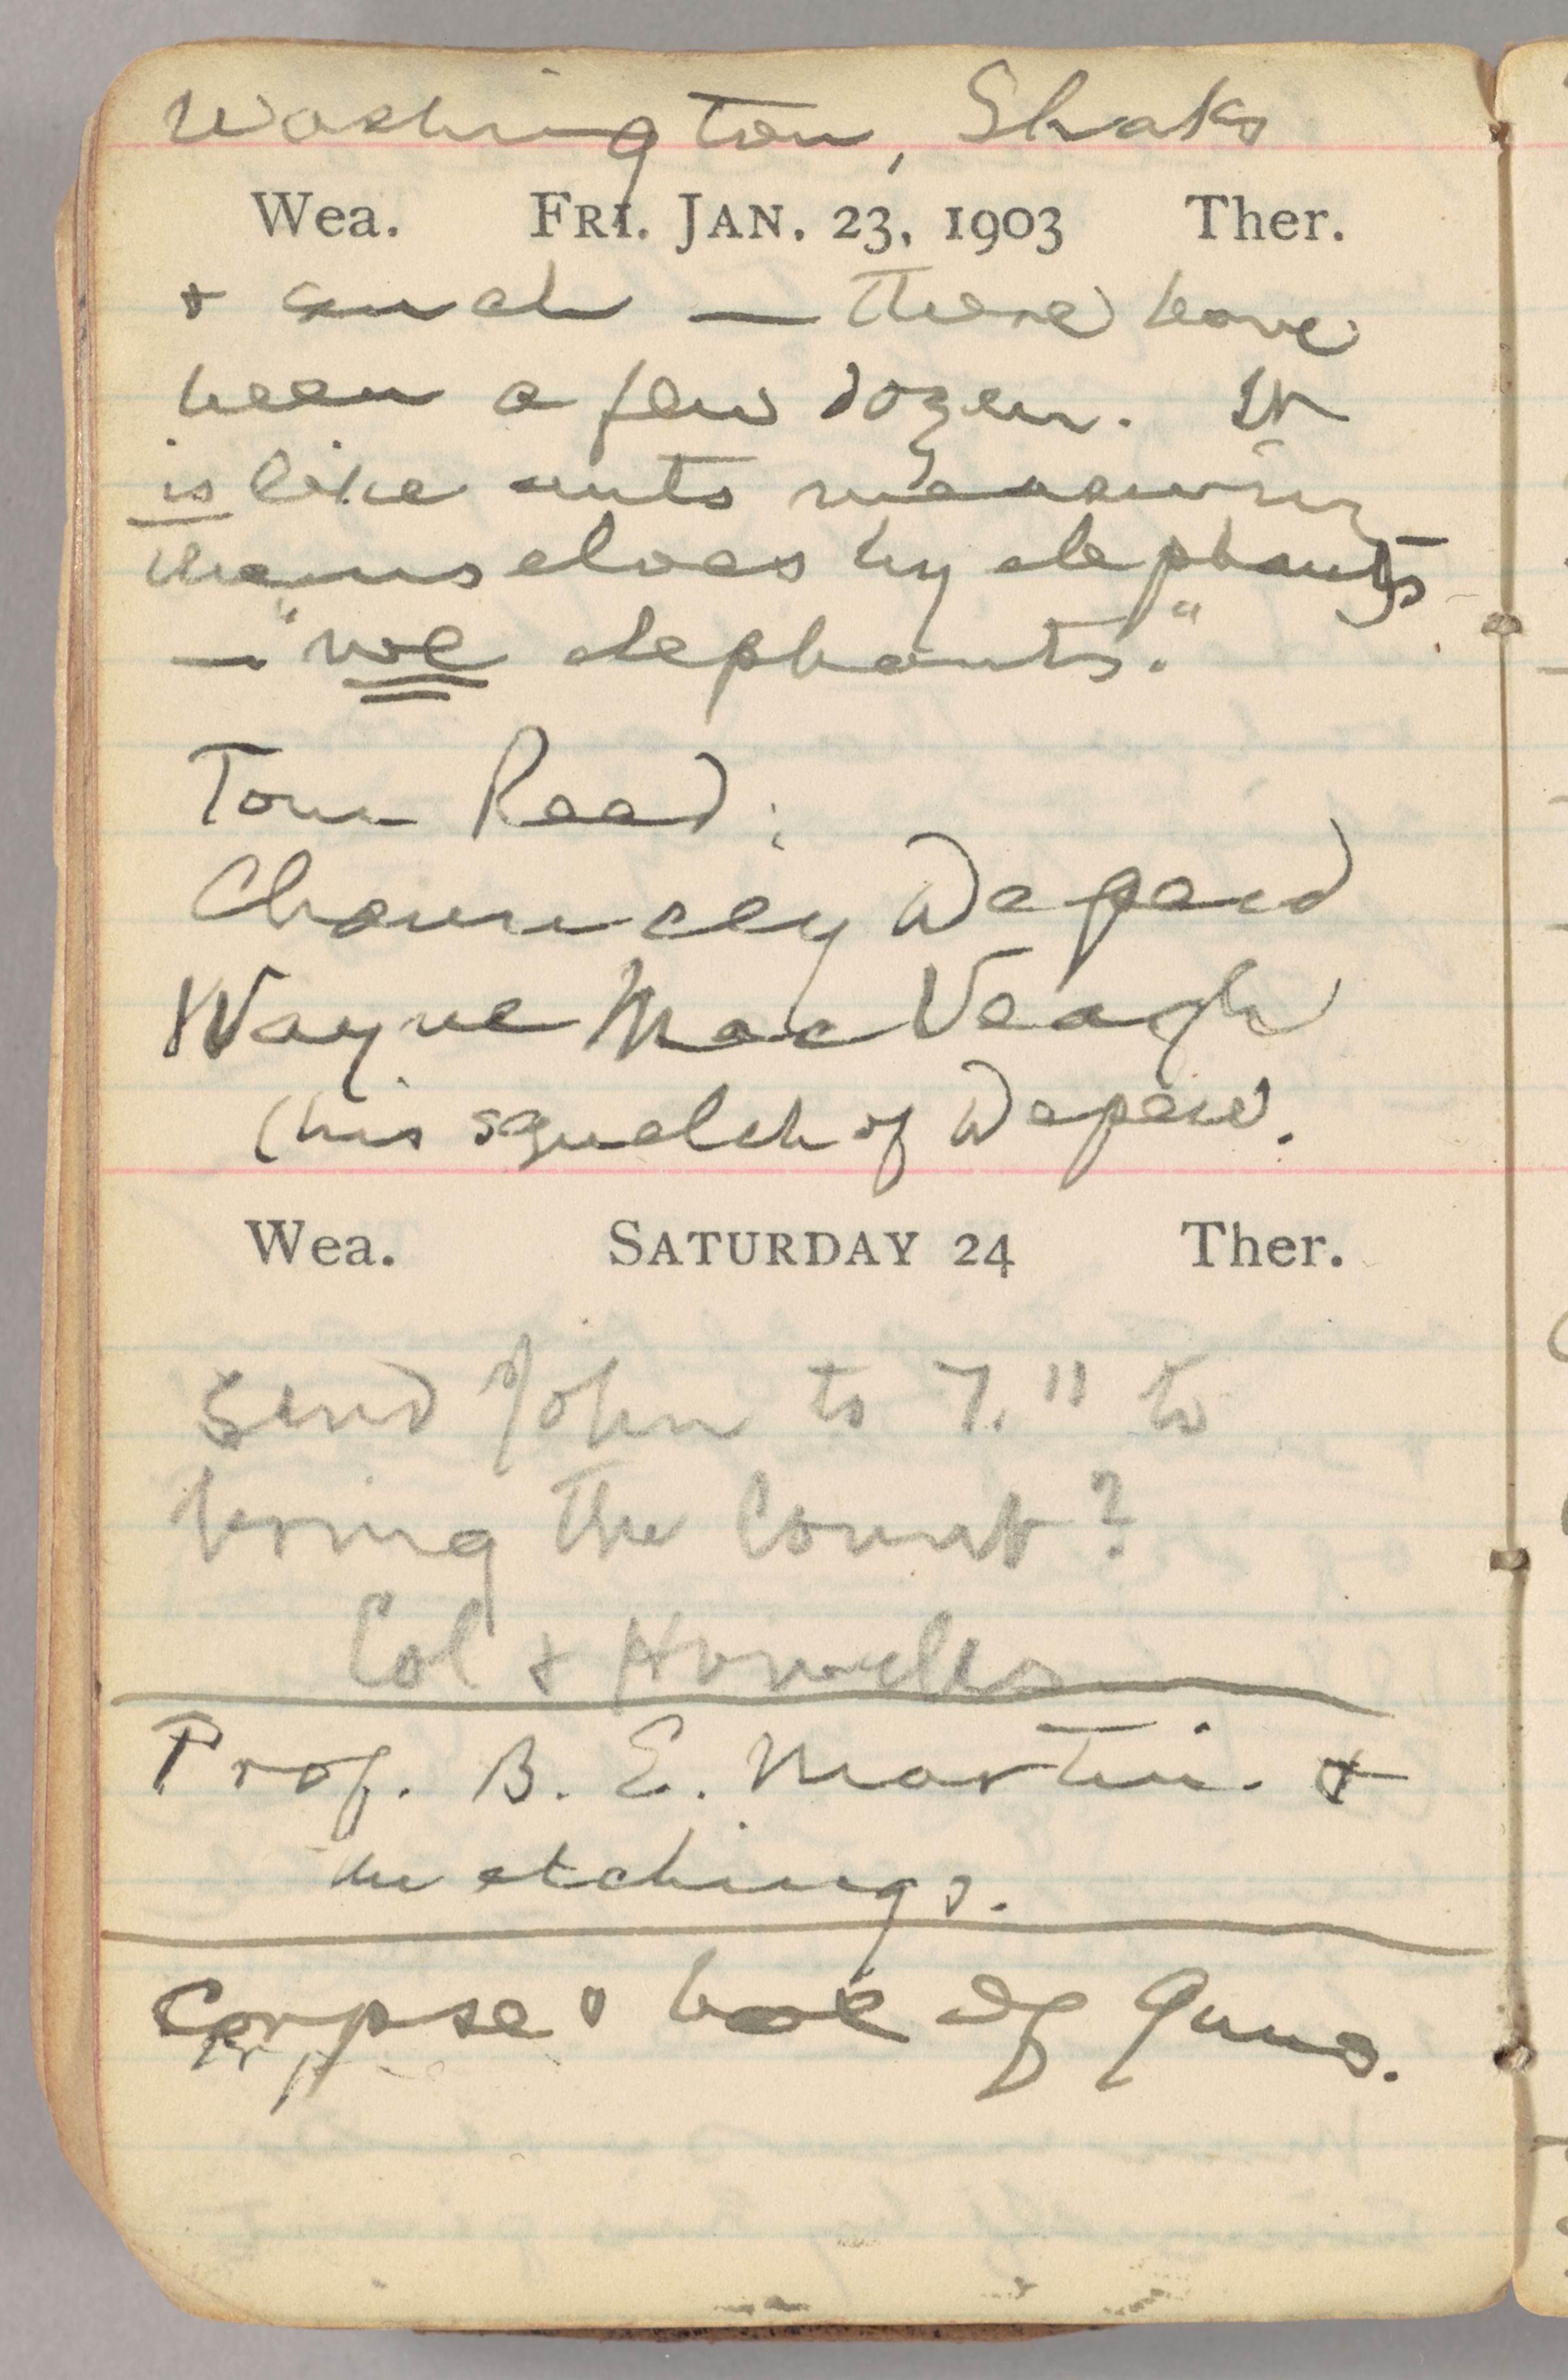 Washington, Shaks
Wea. FRI. JAN. 23, 1903 Ther.
+ such — There have
been a few dozen. It
is like ants measuring
themselves by elephants
— "we elephants."
Tom Reed:
Chauncey Depew
Wayne MacVeagh
(his squelch of Depew.
Wea. SATURDAY 24 Ther.
Send John to 7.11 to
bring the Count?
Col + Howells
Prof. B. E. Martin. +
the etchings.
Corpse & box of guns.